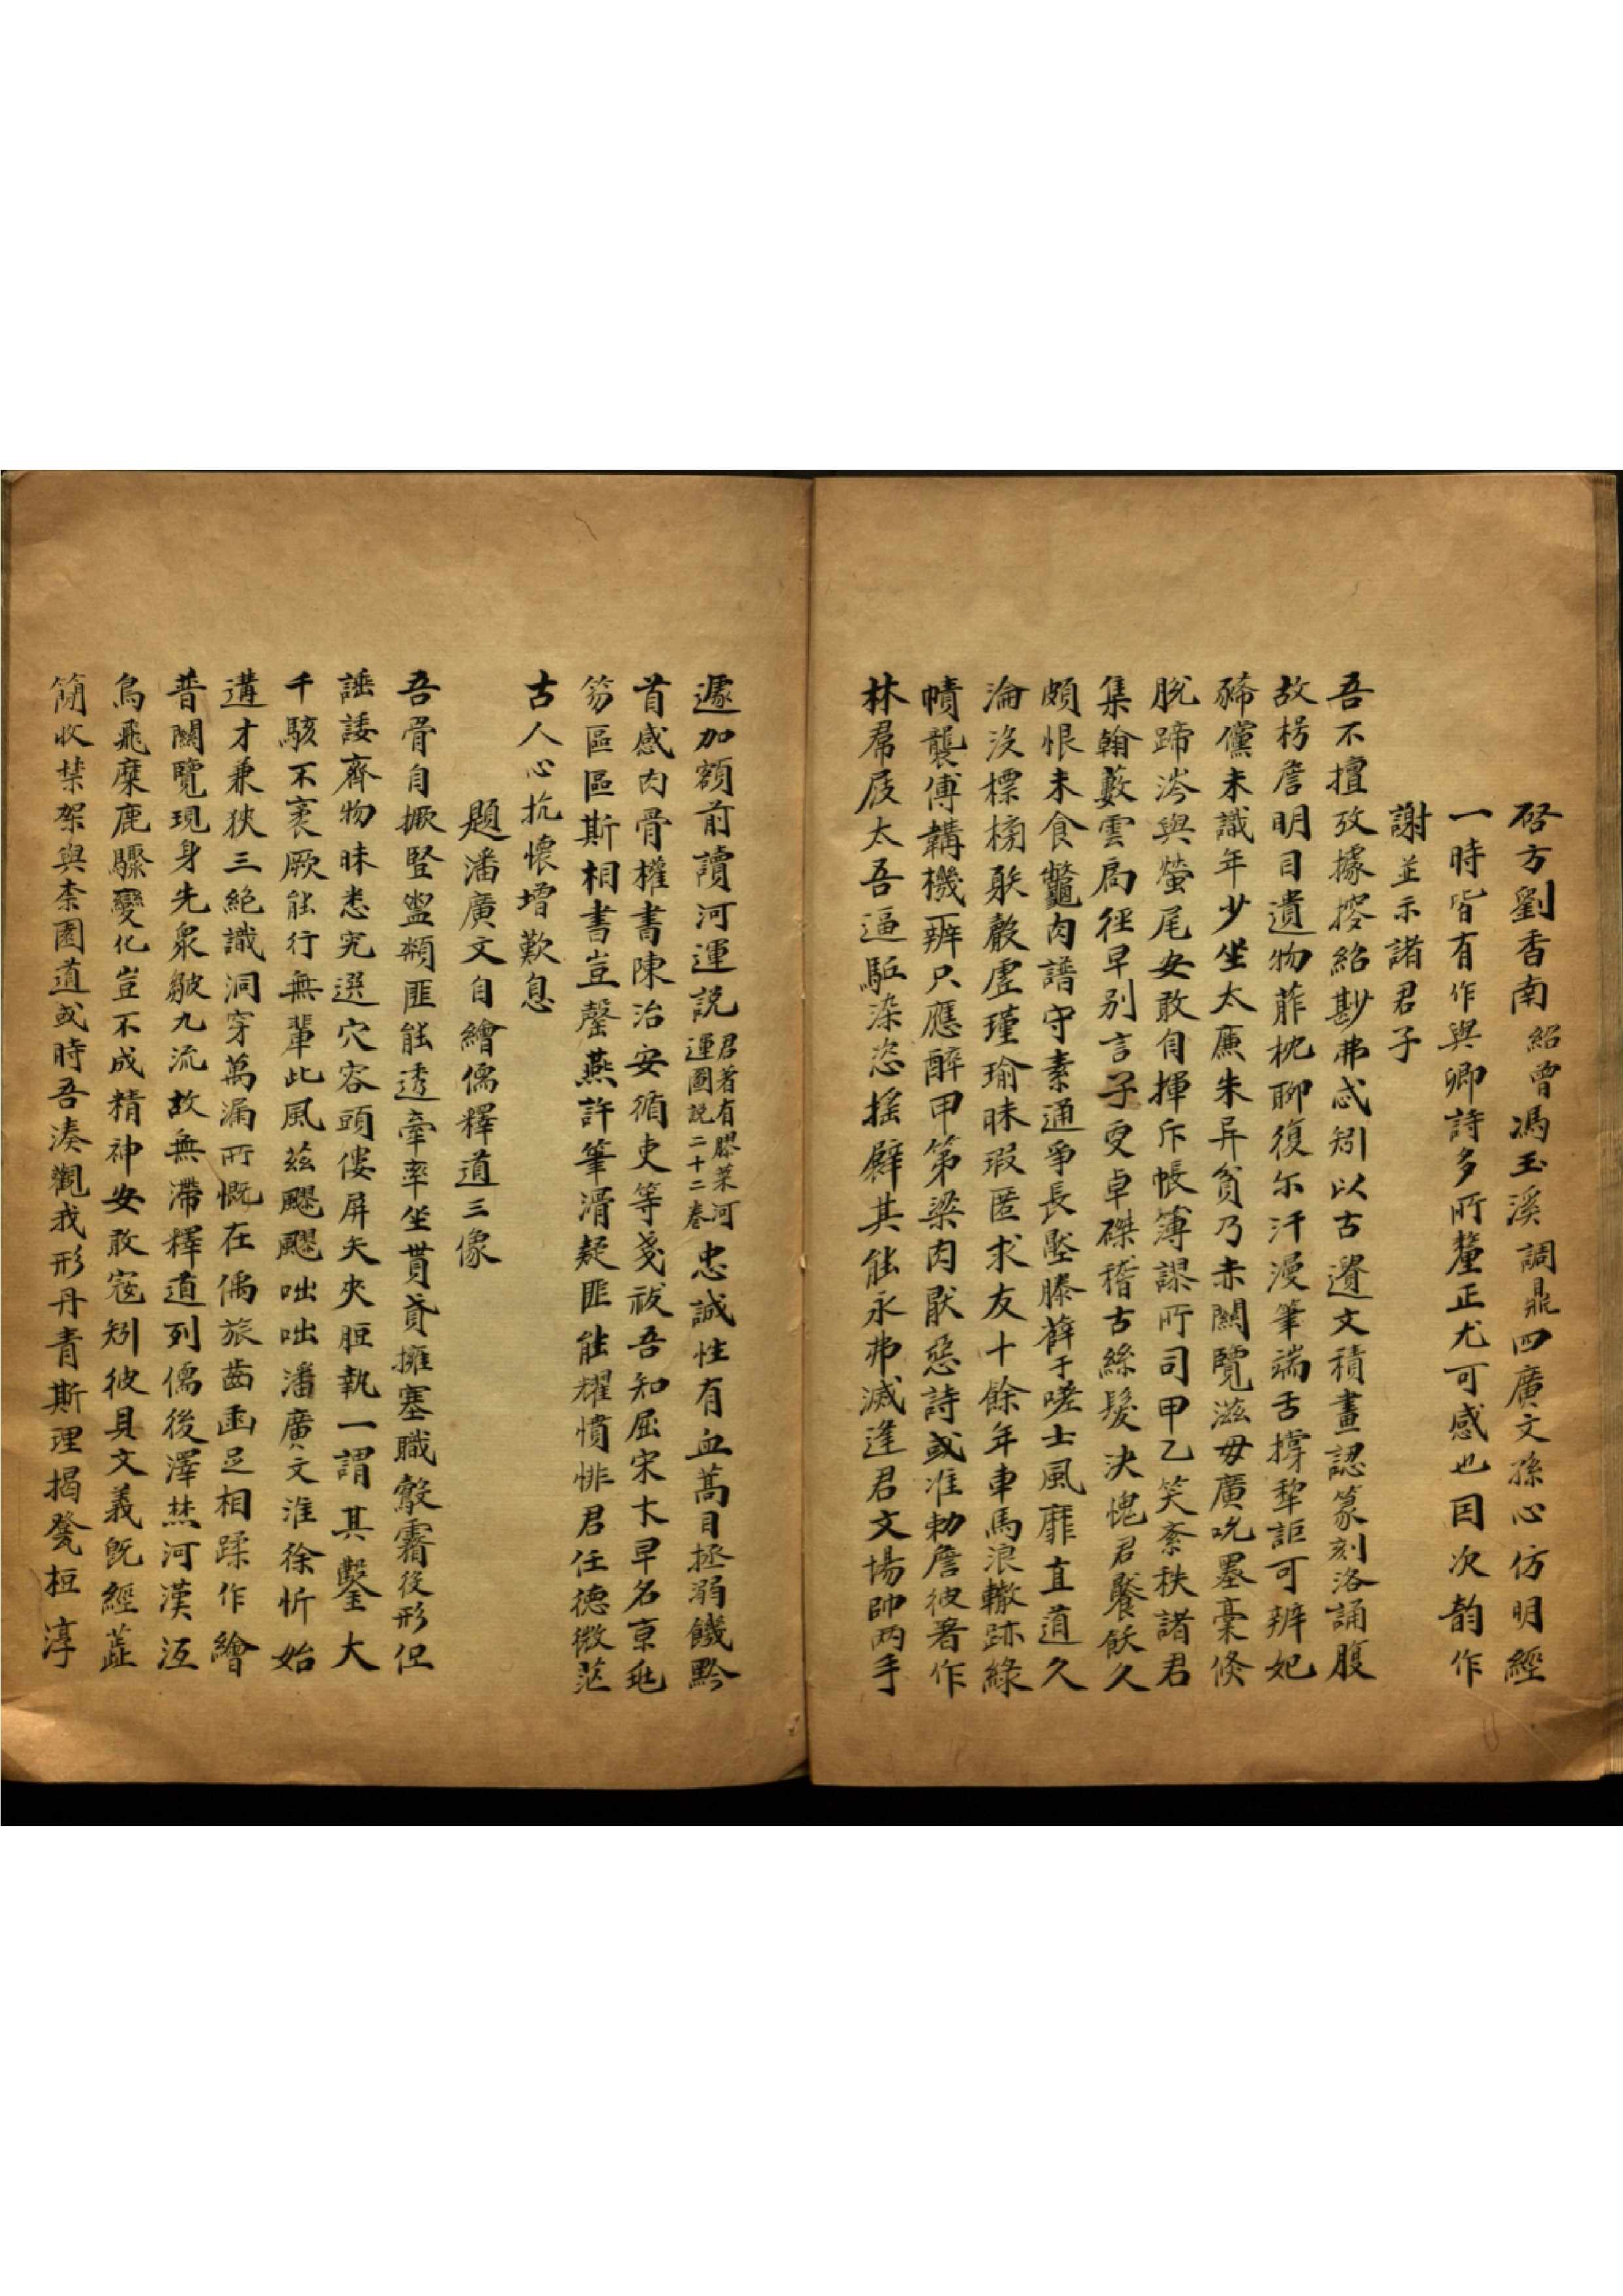 啓方劉香南紹曾馮玉溪調鼎四廣文孫心仿明經
一時皆有作與卿詩多所釐正尤可感也因次韵作
謝並示諸君子
吾不擅攷據揅紹尠弗忒矧以古遺文積畫認篆刻洛誦腹
故枵詹明目遺物䔵枕聊復尔汗漫筆端舌撐犂詎可辨妃
豨儻未識年少坐太廉朱异貧乃赤闕覽滋毋廣吮墨毫倏
脫蹄涔與螢尾安敢自揮斥帳簿謬所司甲乙笑紊秩諸君
集翰藪雲扃徑早别言子叟卓磔稽古絲髮決愧君饜飫久
頗恨未食鼈肉譜守素通爭長墜滕薛于嗟士風靡直道久
淪沒標榜躲觳虛瑾瑜昧瑕匿求友十餘年車馬浪轍跡綠
幘襲傅韝機辨只應醉甲第梁肉厭惡詩或准勅詹彼著作
林屚屐太吾逼駈染恣搖擗其能永弗滅逢君文場帥兩手
遽加額前讀河運説君著有膠萊河運圖說二十二卷忠誠性有血蒿目拯溺饑黔
首感肉骨權書陳治安循吏等戔祓吾知屈宋才早名京甝
笏區區斯相書豈罄燕許筆滑疑匪能燿憤悱君任德微茫
古人心抗懷增歎息
題潘廣文自繪儒釋道三像
吾骨自撅竪盥頮匪能透牽率坐貫貣擁塞職鷇霿後形但
諈諉齊物昧悉宄選穴容頭僂屏矢夾脰執一謂其鑿大
千駭不袤厥能行無輩此風茲飂飂咄咄潘廣文淮徐忻始
遘才兼狹三絕識洞穿萬漏所慨在儒旅齒函足相蹂作繪
普闕覽現身先衆皺九流故無滯釋道列儒後澤焚河漢沍
烏飛麋鹿驟變化豈不成精神安敢寇矧彼具文義旣經䔑
簡收棼架與柰園道或時吾湊觀我形丹青斯理揭凳桓淳